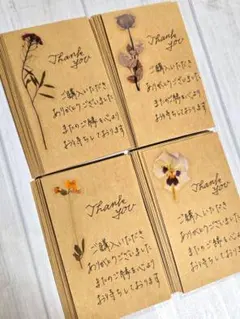 Thank
you
ご購入いただき
ありがとうございました
またのご縁を心より
お待ちしております
Thank
you
ご購入いただき
ありがとうございました
またのご縁を心より
お待ちしております
Thank
you
ご購入いただき
ありがとうございました
またのご縁を心より
お待ちしております
Thank
you
ご購入いただき
ありがとうございました
またのご縁を心より
お待ちしております